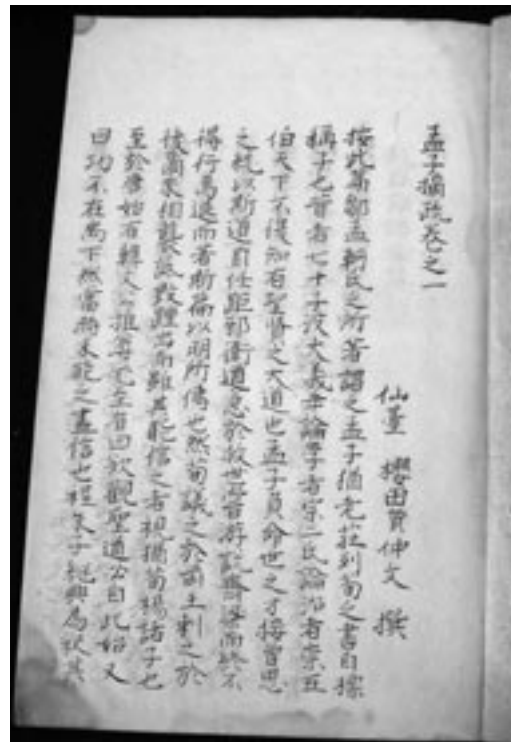 孟子摘疏卷之一
仙臺 櫻田質仲文 撰
按此篇鄒孟軻氏之所著謂之孟子猶老莊列荀之書自標
稱子也昔者七十子沒大義乖論學者宗二氏論治者宗五
伯天下不復知有聖賢之大道也孟子負命世之才接曾思
之統以斯道自任距邪衛道急於救世嘗游說齊梁而終不
得行焉退而著斯篇以明所傳也然荀議之於前王刺之於
後爾來相襲 出而雖其能信之者視猶荀楊諸子也
至於唐始有韓文公推尊 有曰欲觀聖道必自此始又
曰功不在禹下然當時未能之盡信也程朱子 興為 其